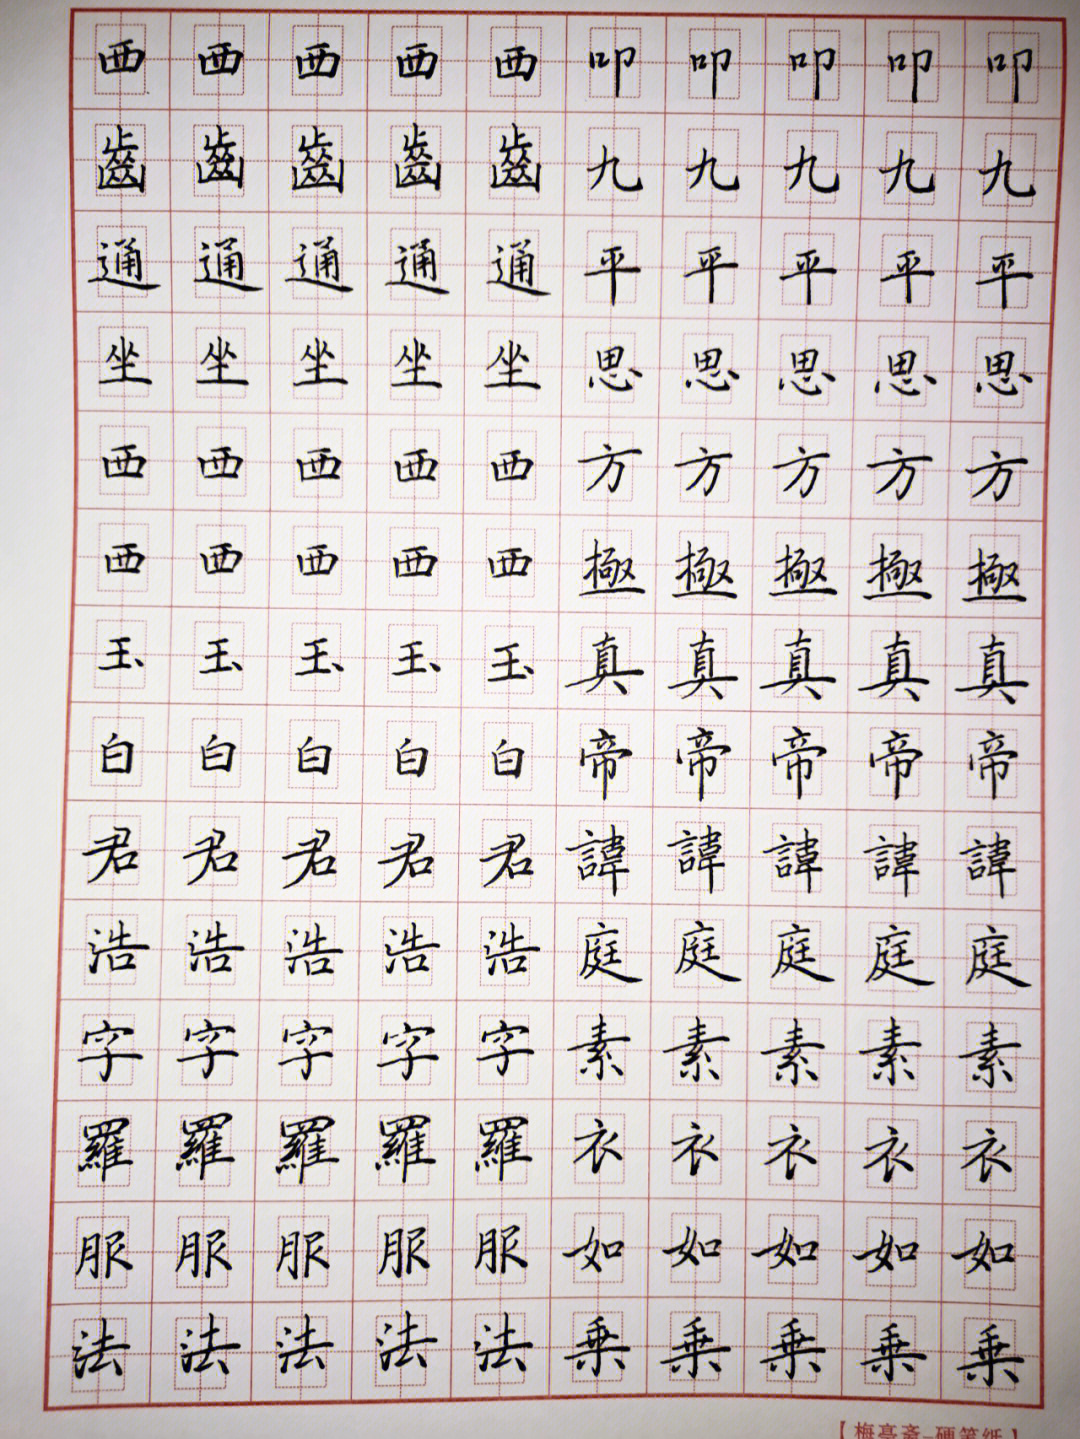 西西西西西叩叩叩叩叩
齒齒齒齒齒九九九九九
通通通通通平平平平平
坐坐坐坐坐思思思思思
西西西西西方方方方方
西西西西西極極極極極
玉玉玉玉玉真真真真真
白白白白白帝帝帝帝帝
君君君君君諱諱諱諱諱
浩浩浩浩浩庭庭庭庭庭
字字字字字素素素素素
羅羅羅羅羅衣衣衣衣衣
服服服服服如如如如如
法法法法法乗乗乗乗乗
【梅亭斋-硬笔纸】